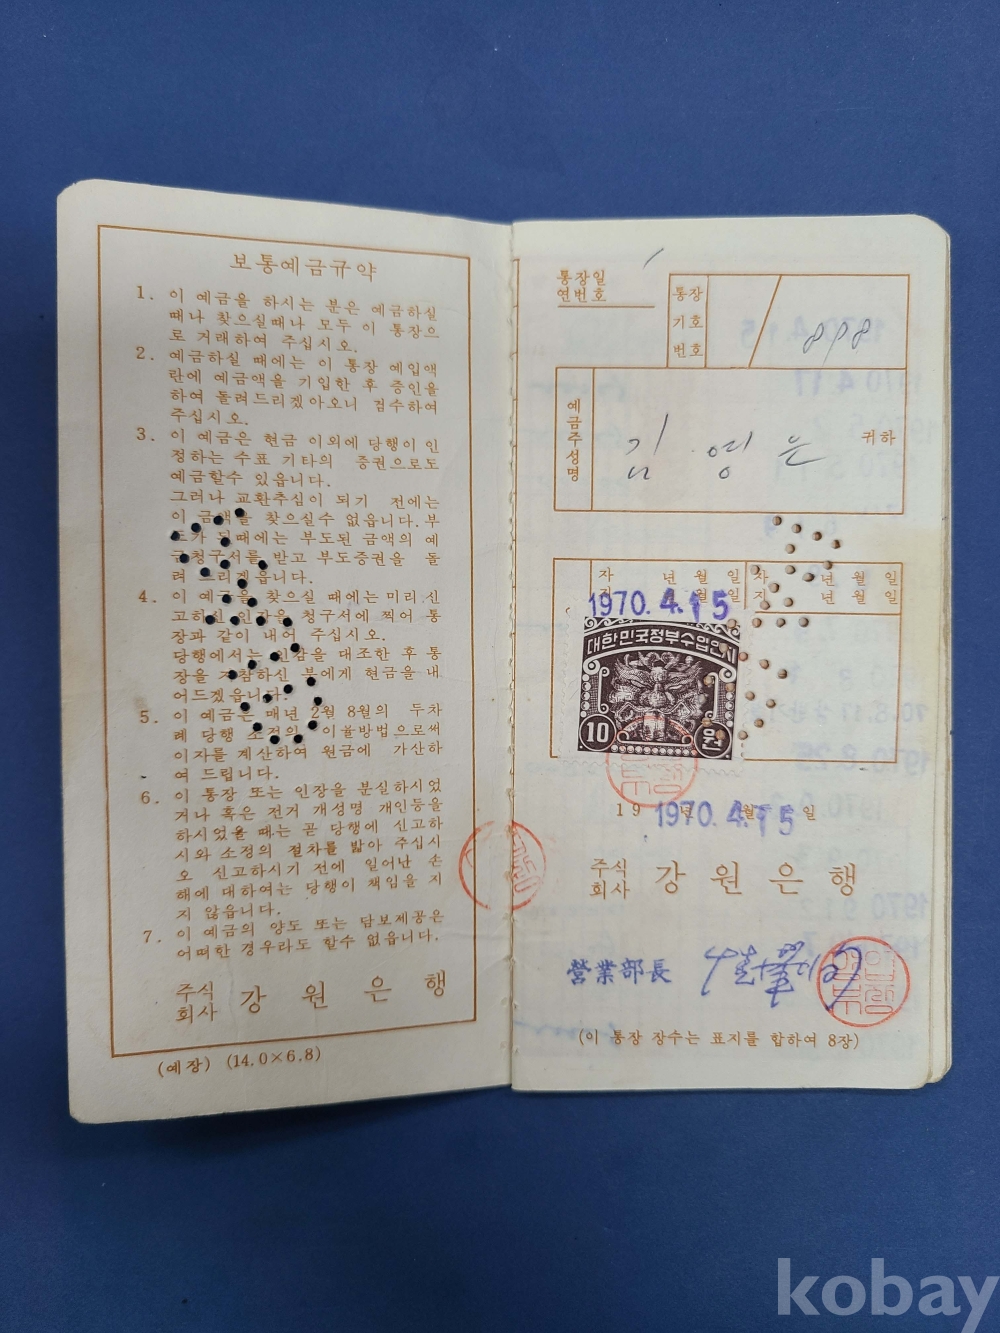 보통예금규약
1. 이 예금을 하시는 분은 예금하실
때나 찾으실때나 모두 이 통장으
로 거래하여 주십시오.
2. 예금하실 때에는 이 통장 예입액
란에 예금액을 기입한 후 증인을
하여 돌려드리겠아오니 검수하여
주십시오.
3. 이 예금은 현금 이외에 당행이 인
정하는 수표 기타의 증권으로도
예금할수 있읍니다.
그러나 교환추심이 되기 전에는
이 금액을 찾으실수 없읍니다. 부
도가 된때에는 부도된 금액의 예
금청구서를 받고 부도증권을 돌
려 드리겠읍니다.
4. 이 예금을 찾으실 때에는 미리 신
고하신 인장을 청구서에 찍어 통
장과 같이 내어 주십시오.
당행에서는 인감을 대조한 후 통
장을 지참하신 분에게 현금을 내
어드겠읍니다.
5. 이 예금은 매년 2월 8월의 두차
례 당행 소정의 이율방법으로써
이자를 계산하여 원금에 가산하
여 드립니다.
6. 이 통장 또는 인장을 분실하시었
거나 혹은 전거 개성명 개인등을
하시었을 때는 곧 당행에 신고하
시와 소정의 절차를 밟아 주십시
오 신고하시기 전에 일어난 손
해에 대하여는 당행이 책임을 지
지 않읍니다.
7. 이 예금의 양도 또는 담보제공은
어떠한 경우라도 할수 없읍니다.
주식
회사 강원은행
(예장) (14.0×6.8)
통장일
연번호
통장
기호
번호
898
예금주성명
김영은 귀하
자 년 월 일 자 년 월 일
지 년 월 일 지 년 월 일
1970. 4. 15
대한민국정부수입인지
10원
19 년 월 일
1970. 4. 15
주식
회사 강원은행
營業部長
영업부장
(이 통장 장수는 표지를 합하여 8장)
kobay